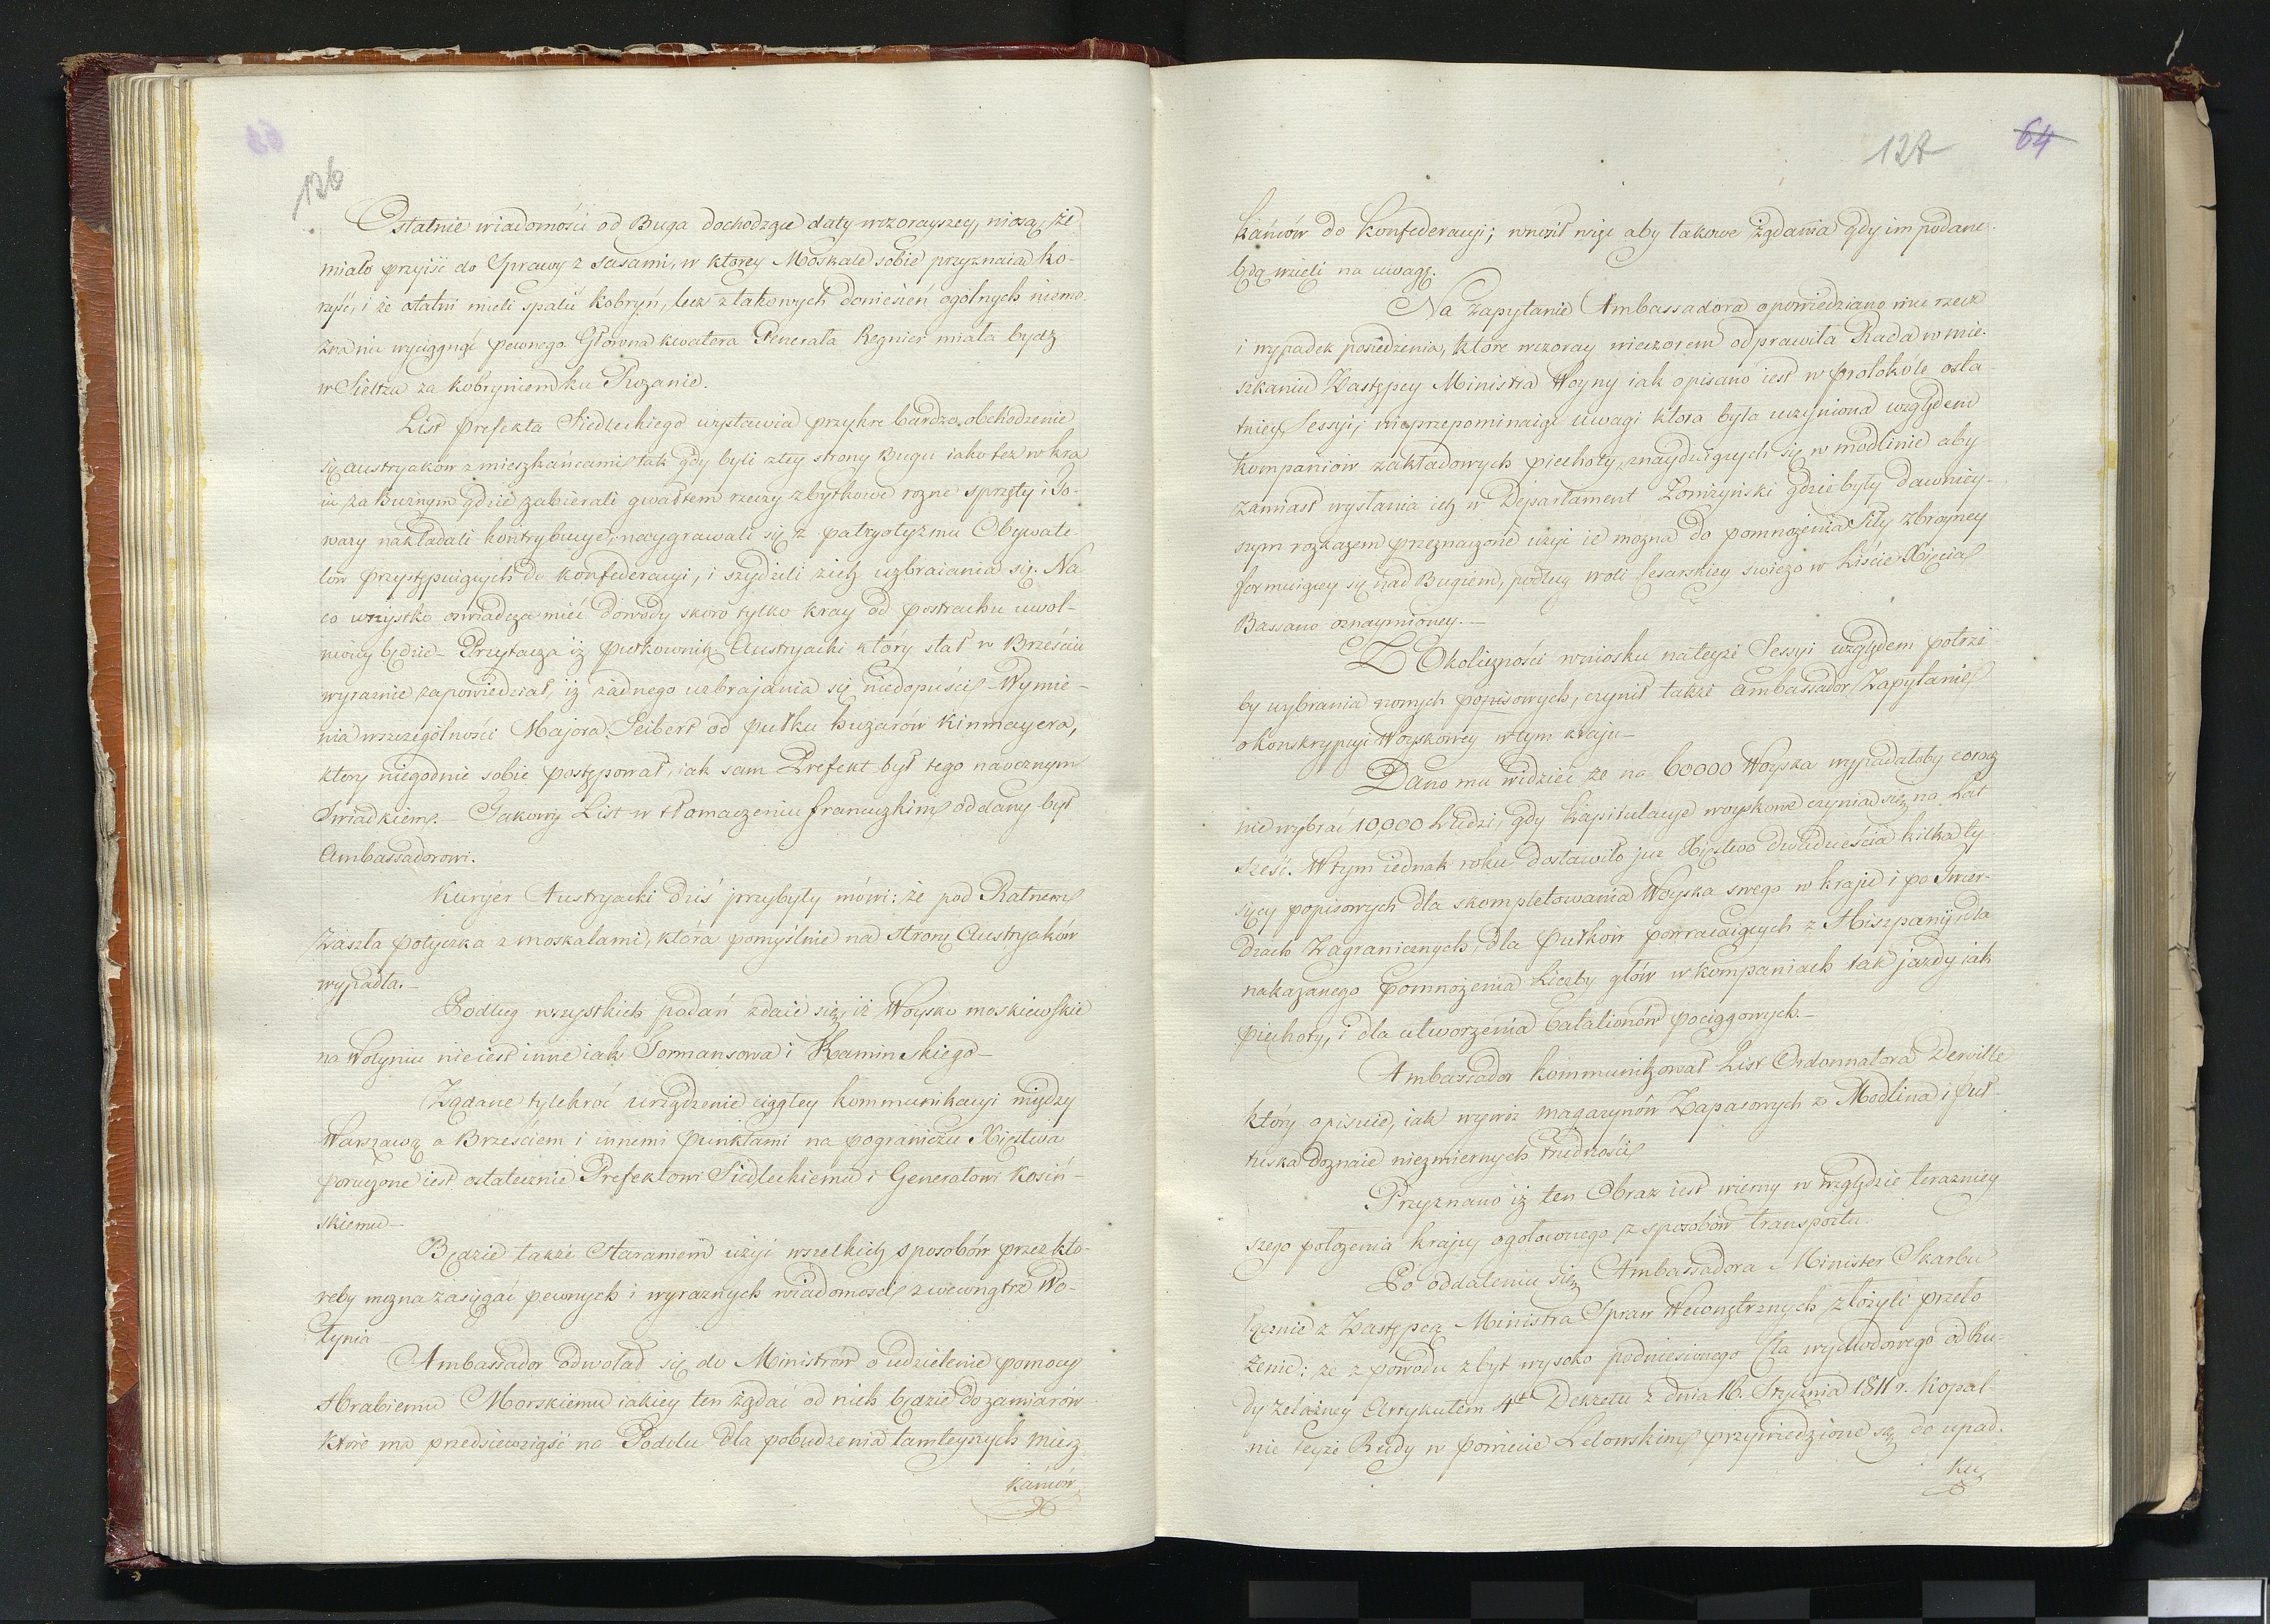 126
Ostatnie wiadomości od Buga dochodzące daty wczorayszey, niosą, że
miało przyiść do Sprawy z Sasami, w ktorey Moskale sobie przyznaią ko-
rzyść, i że ostatni mieli spalić Kobryń, lecz z takowych doniesień ogolnych niemo-
żna nic wyciągnąć pewnego. Głowna kwatera Generała Regnier miała bydź
w Sielcu za Kobryniem ku Pruzanie.
List Prefekta Siedleckiego wystawia przykre bardzo obchodzenie
się austryakow z mieszkańcami tak gdy byli z tey strony Bugu iako też w kra
iu za Bużnym gdzie zabierali gwałtem rzeczy zbytkowe rożne sprzęty i To-
wary nakładali kontrybucye, naygrawali się z patryotyzmu Obywate-
low przystępuiących do konfederacyi, i szydzili z ich uzbraiania się. Na
co wszystko oświadcza mieć dowody skoro tylko kray od postrachu uwol-
niony będzie – Przytacza iż pułkownik Austryacki który stał w Brześciu
wyraznie zapowiedział, iż żadnego uzbrajania się niedopuści – Wymie-
nia wszczególności Majora Seibert od pułku huzarów Kinmayera,
ktory niegodnie sobie postępował, iak sam Prefekt był tego naocznym
Swiadkiem. – Takowy List w tłomaczeniu francuzkim oddany był
Ambassadorowi.
Kuryer Austryacki dziś przybyły mówi: że pod Ratnem
Zaszła potyczka z moskalami, która pomyślnie na stronę Austryaków
wypadła. –
Podług wszystkich podań zdaie się, iż Woysko moskiewskie
na Wołyniu nieiest inne iak Tormansowa i Kaminskiego –
Żądane tylekroć urządzenie ciągłey kommunikacyi między
Warszawą a Brześciem i innemi punktami na pograniczu Xięstwa
poruczone iest ostatecznie Prefektowi Siedleckiemu i Generałowi Kosiń-
skiemu –
Będzie także Staraniem użyć wszelkich sposobów przez kto-
reby można zasięgać pewnych i wyraznych wiadomości z wewnątrz Wo-
łynia –
Ambassador odwołał się do Ministrów o udzielenie pomocy
Hrabiemu Morskiemu iakiey ten żądać od nich będzie do zamiarów
które ma przedsiewziąść na Podolu dla pobudzenia tamteyszych miesz
kańców
127 64
kańców do Konfederacyi; wnosił więc aby takowe żądania gdy im podane
będą wzieli na uwagę.
Na zapytanie Ambassadora opowiedziano mu rzecz
i wypadek posiedzenia, ktore wczoray wieczorem odprawiła Rada w mie-
szkaniu Zastępcy Ministra Woyny iak opisano iest w protokóle osta-
tniey Sessyi, nieprzepominaiąc uwagi ktora była uczyniona względem
kompaniów zakładowych piechoty, znayduiących się w modlinie aby
zamiast wysłania ich w Departament Łomżyński gdzie były dawniey-
szym rozkazem przeznaczone użyć ie można do pomnożenia Siły zbroyney
formuiącey się nad Bugiem, podług woli Cesarskiey swieżo w Liście Xięcia
Bassano oznaymioney. –
Z Okoliczności wniosku nateyże Sessyi względem potrze
by wybrania nowych popisowych, czynił także Ambassador Zapytanie
o konskrypcyi Woyskowey w tym kraju –
Dano mu widzieć że na 60000 Woyska wypadałoby corocz
nie wybrać 10,000 Ludzi, gdy kapitulacye woyskowe czynią się na Lat
sześć. W tym iednak roku dostawiło już Xięstwo dwadzieścia kilka ty
sięcy popisowych dla skompletowania Woyska swego w kraju i po Twier-
dzach Zagranicznych, dla Pułków powracaiących z Hiszpanii, dla
nakazanego pomnożenia Liczby głów w kompaniach tak jazdy iak
piechoty, i dla utworzenia batalionów pociągowych. –
Ambassador kommunikował List Ordonnatora Derville
który opisuie, iak wywóz magazynów Zapasowych z Modlina i Puł-
tuska doznaie niezmiernych trudności
Przyznano iż ten Obraz iest wierny w względzie teraźniey
szego położenia kraju ogołoconego z sposobów transportu.
Po oddaleniu się Ambassadora Minister Skarbu
łącznie z Zastępcą Ministra Spraw Wewnętrznych złożyli przeło
żenie: że z powodu zbyt wysoko podniesionego Cła wychodowego od Ru-
dy żelazney Artykułem 4tm Dekretu z dnia 16. Stycznia 1811 r. kopal-
nie teyże Rudy w powiecie Lelowskim przywiedzione są do upad-
ku